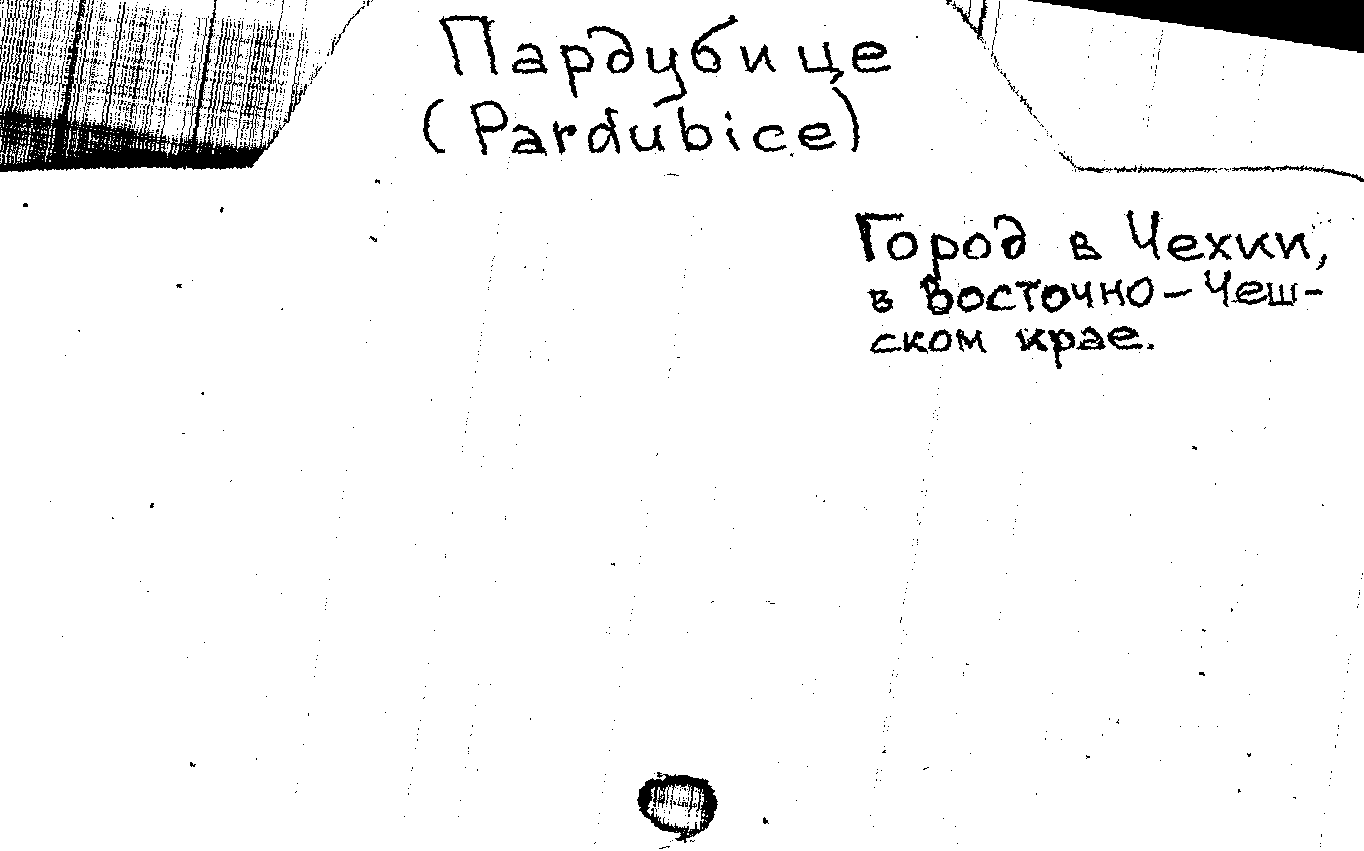 Пардубице
(Pardubice)
Город в Чехии,
в Восточно-Чеш-
ском крае.